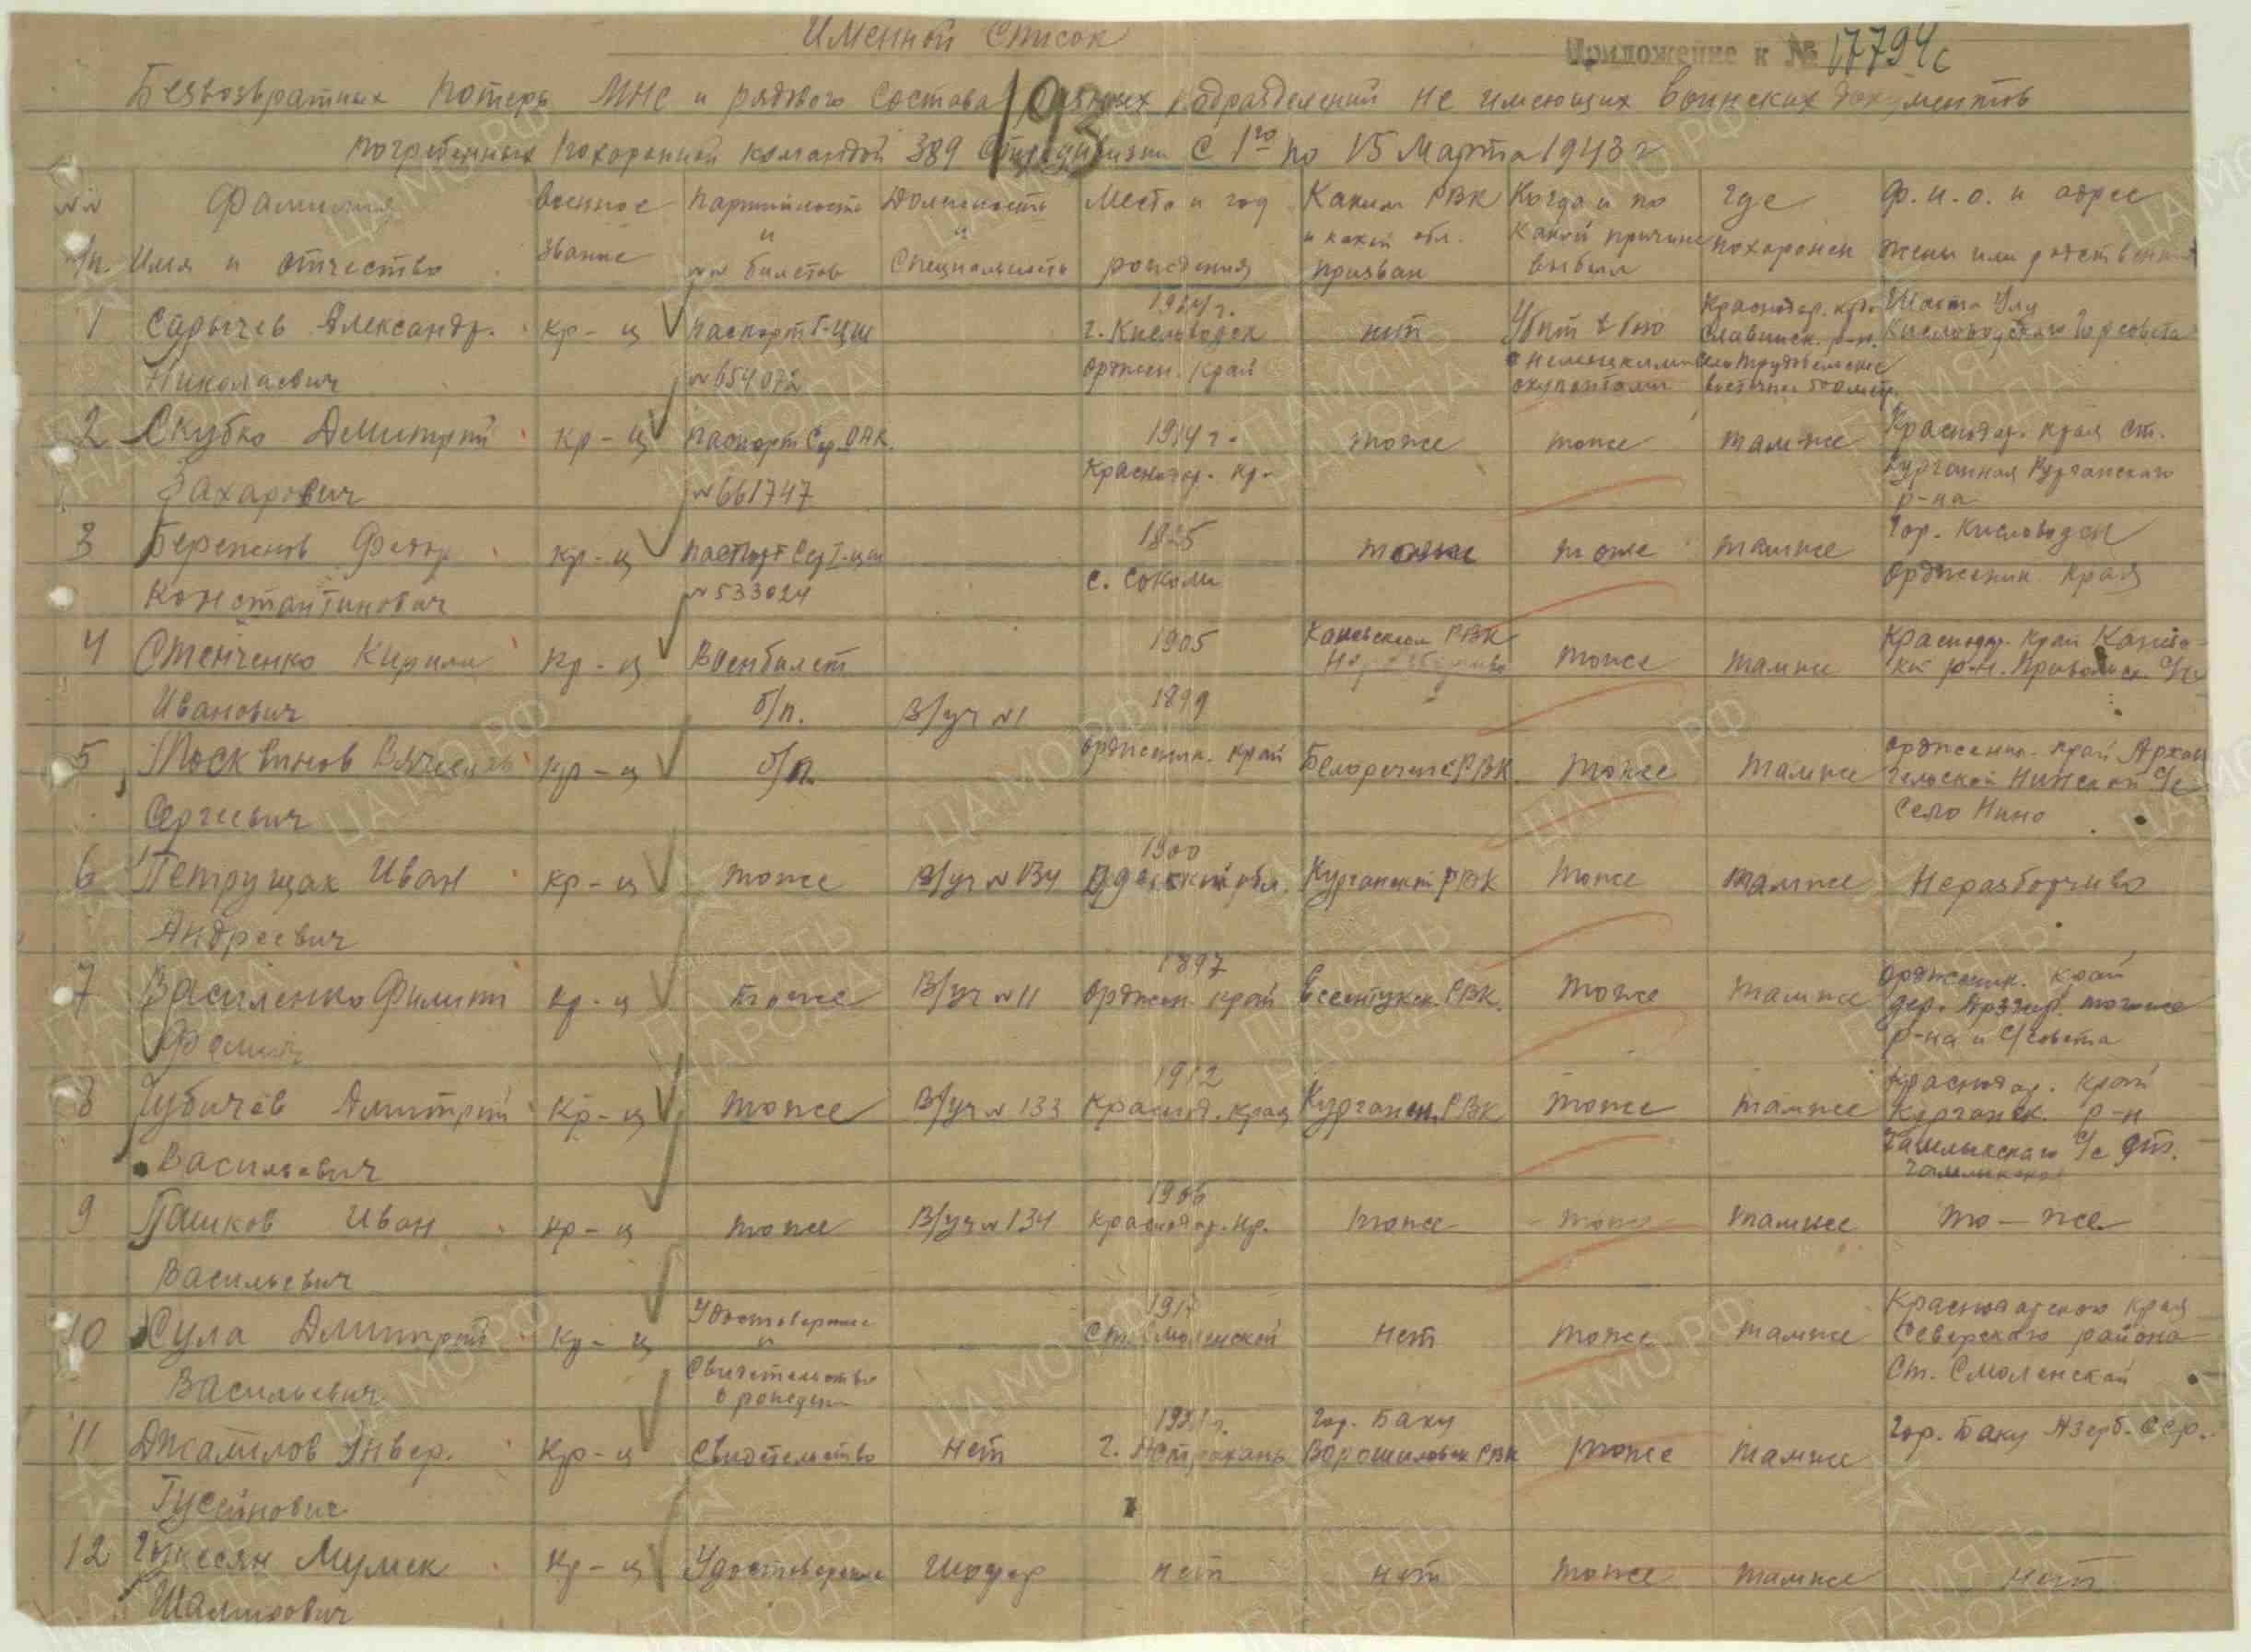 Именной список
Приложение к № 17794с
Безвозвратных потерь МНС и рядового состава разных подразделений не имеющих воинских документов
193
погребенных похоронной командой 389 Стрел. дивизии с 1го по 15 Марта 1943 г
№№ п/п. Фамилия Имя и отчество
военное звание
Партийность и №№ билетов
Должность и Специальность
Место и год рождения
Каким РВК и какой обл. призван
Когда и по какой причине выбыл
где похоронен
Ф.И.О. и адрес жены или родственник
1 Сарычев Александр. Николаевич
кр-ц
паспорт
№654072
г. Кисловодск
орджон. край
нет
Убит в бою
с немецкими
окупантами
Краснодар. кр.
Славянск. р-н.
Кисловодского Горсовета
2 Скубко Дмитрий Захарович
кр-ц
паспорт Сер.
№661747
1914 г.
Краснодар. кр.
тоже
тоже
там-же
Краснодар. края ст.
Курганная Курганского
р-на
3 Федор Константинович
кр-ц
паспорт Сер
№533024
с. Соколы
тоже
тоже
тамже
Гор. Кисловодск
Орджоник края
4 Стенченко Кирилл Иванович
кр-ц
Военбилет
б/п.
В/уч №1
1905
1899
Каневским РВК
тоже
тамже
Краснодар. край
5 Москвинов Сергеевич
кр-ц
б/п.
орджоник. край
РВК
тоже
тамже
орджоник. край Архан
гельской Нинский С/с
село Нино
6 Петрущак Иван Андреевич
кр-ц
тоже
В/уч №134
1900
Курганский РВК
тоже
тамже
Неразборчиво
7 Василенко Филипп Фомич
кр-ц
тоже
В/уч №11
1897
орджон. край
Ессентукск. РВК.
тоже
тамже
орджоник. край
дер. Арзгир. тогоже
р-на и С/совета
8 Дмитрий Васильевич
кр-ц
тоже
В/уч № 133
1912
Краснод. края
Курганск. РВК
тоже
тамже
Краснодар. край
Курганск. р-н
9 Пашков Иван Васильевич
кр-ц
тоже
В/уч №134
1906
Краснодар. кр.
тоже
тоже
тамже
то-же
10 Сула Дмитрий Васильевич
кр-ц
Удостоверение
и
Свидетельство
о рожден
ст. Смоленской
нет
тоже
тамже
Краснодарского края
Северского района
Ст. Смоленской
11 Джамилов Энвер. Гусейнович
кр-ц
Свидетельство
нет
г. Астрахань
Гор. Баку
Ворошиловск РВК
тоже
тамже
Гор. Баку Азерб. сср.
12
кр-ц
Удостоверение
Шофер
нет
нет
тоже
тамже
нет